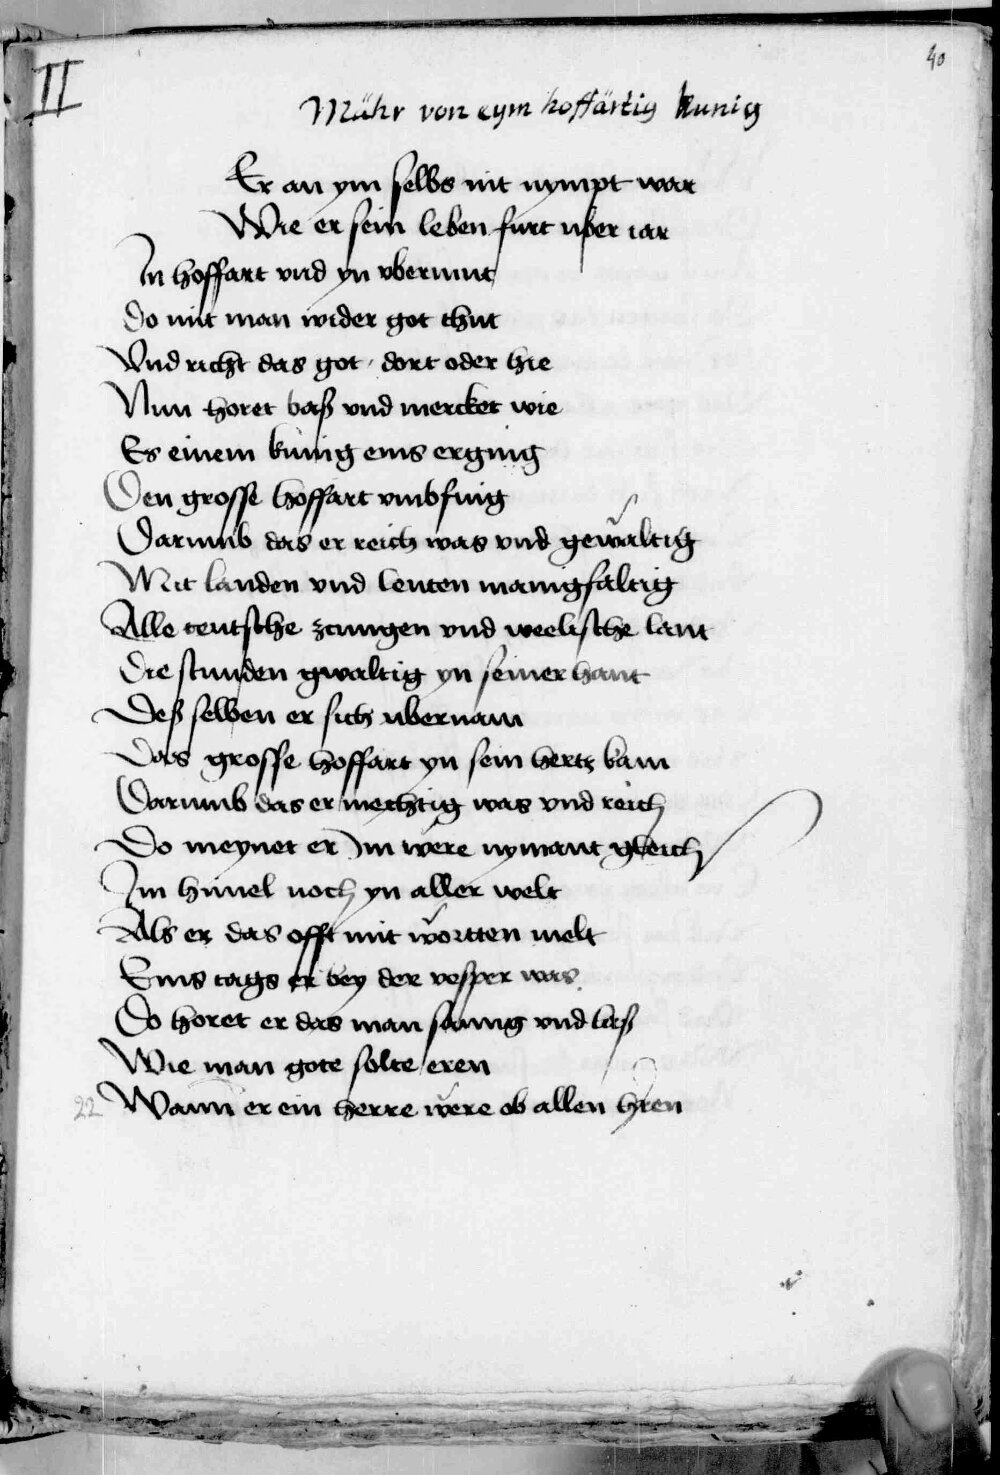 40
II
Mähr von eym hoffärtig kunig
Er an ym selbs nit nympt war
Wie er sein leben furt uber iar
In hoffart vnd yn vbermut
Do mit man wider got thut
Vnd richt das got dort oder hie
Nun horet baß vnd mercket wie
Es einem kunig eins erging
Den grosse hoffart vmbfing
Darumb das er reich was vnd gewaltig
Mit landen vnd leuten manigfaltig
Alle teutsche zcungen vnd weelische lant
Die stunden gwaltig yn seiner hant
Deß selben er sich ubernam
Das grosse hoffart yn sein hertz kam
Darumb das er mechtig was vnd reich
Do meynet er im were nymant gleich
Im himel noch yn aller welt
Als er das offt mit wortten melt
Eins tags er bey der vesper was
Do horet er das man sanng vnd laß
Wie man gote solte eren
22 Wann er ein herre were ob allen hren